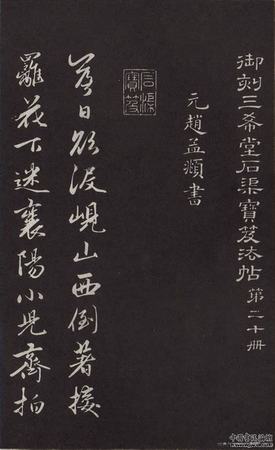 御刻三希堂石渠寶笈法帖 第二十册
元趙孟頫書
落日欲没峴山西倒著接
䍦花下迷襄陽小兒齊拍